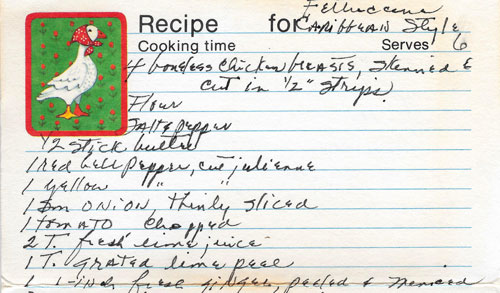 Recipe for Fettuccine
Caribbean Style
Cooking time Serves 6
4 boneless chicken breasts, skinned &
cut in 1/2" strips
Flour
Salt & pepper
1/2 stick butter
1 red bell pepper, cut julienne
1 yellow " "
1 sm onion, thinly sliced
1 tomato chopped
2 T. fresh lime juice
1 T. grated lime peel
1 1-inch fresh ginger, peeled & minced